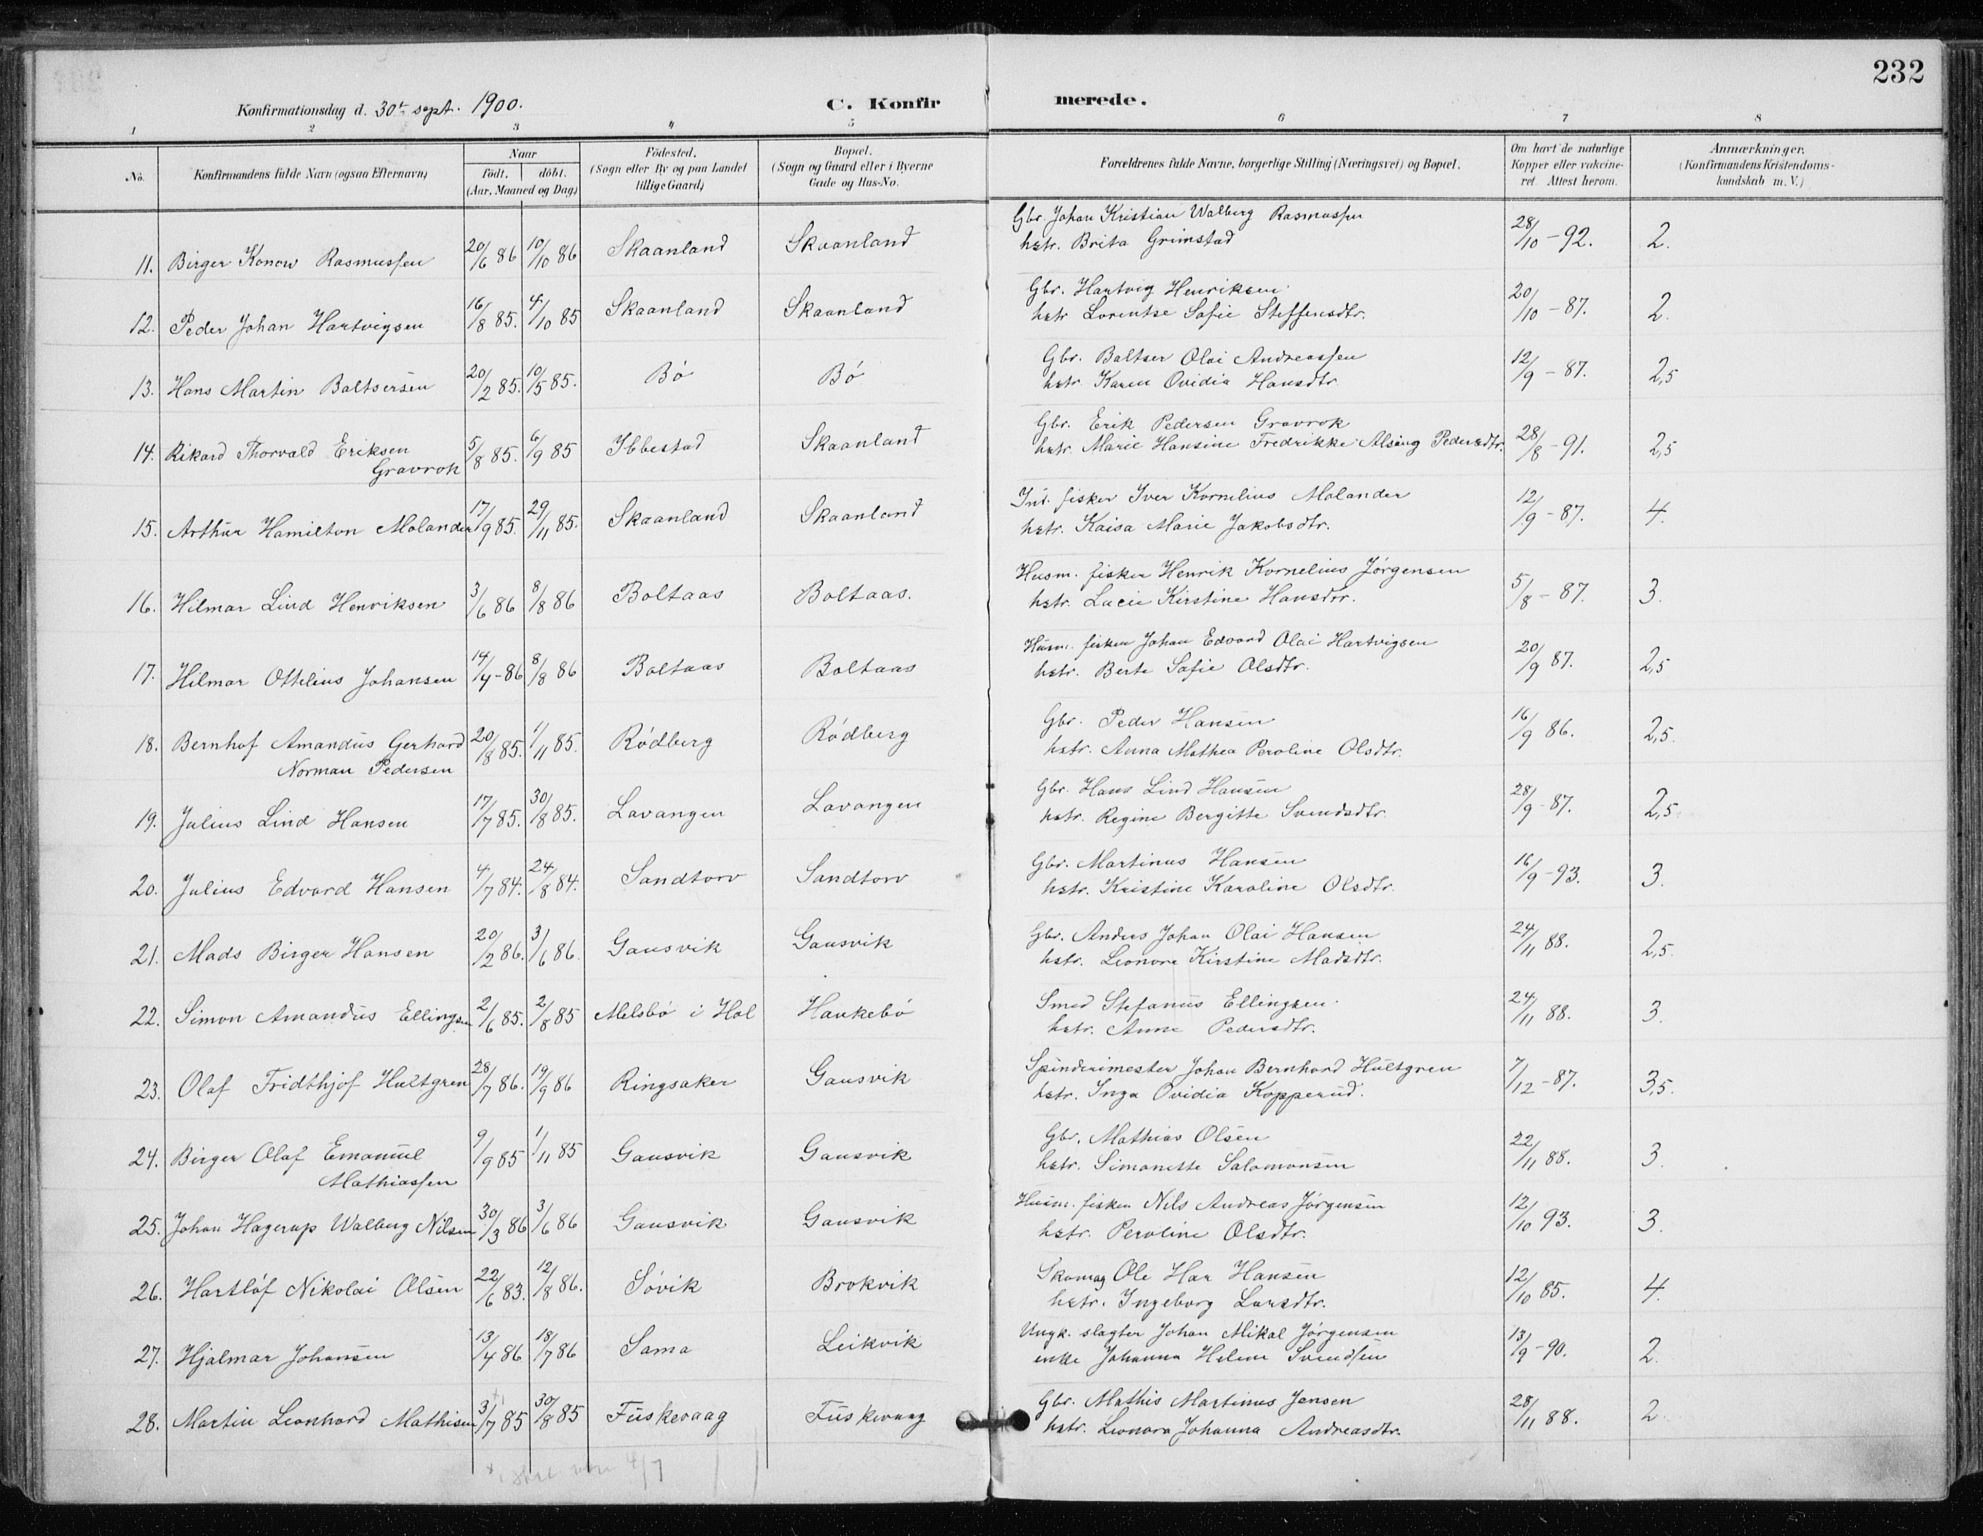 232
Konfirmationsdag d. 30t sept. 1900.
C. Konfirmerede.
1 2 3 4 5 6 7 8
No.
Konfirmandens fulde Navn (ogsaa Efternavn)
Naar
födt. döbt.
(Aar, Maaned og Dag)
Födested.
(Sogn eller By og paa Landet
tillige Gaard)
Bopæl.
(Sogn og Gaard eller i Byerne
Gade og Hus-No.
Forældrenes fulde Navne, borgerlige Stilling (Næringsvei) og Bopæl.
Om havt de naturlige
Kopper eller vakcine-
ret. Attest herom.
Anmærkninger,
(Konfirmandens Kristendoms-
kundskab m. V.)
Gbr. Johan Kristian Walberg Rasmussen
11. Birger Konow Rasmussen 20/6 86 10/10 86 Skaanland Skaanland hstr. Brita Grimstad 28/10 - 92. 2.
Gbr. Hartvig Henriksen
12. Peder Johan Hartvigsen 16/8 85. 4/10 85 Skaanland Skaanland hstr Lorentse Sofie Steffensdtr. 20/10 - 87. 2.
Gbr. Baltser Olai Andreassen
13. Hans Martin Baltsersen 20/2 85. 10/5 85. Bó Bó hstr. Karen Ovidia Hansdtr. 12/9 - 87. 2,5
Gbr. Erik Pedersen Gravrok
14. Rikard Thorvald Eriksen 5/8 85. 6/9 85 Ibbestad Skaanland hstr. Marie Hansine Fredrikke Alsing Pedersdtr. 28/8 - 91. 2,5
Gravrok
Ind. fisker Iver Kornelius Molander
15. Arthur Hamilton Molander 17/9 85. 29/11 85. Skaanland Skaanland hstr. Kaisa Marie Jakobsdtr. 12/9 - 87. 4.
Husm. fisker Henrik Kornelius Jórgensen
16. Hilmar Lind Henriksen 3/6 86 8/8 86 Boltaas Boltaas. hstr. Lucie Kirstine Hansdtr. 5/8 - 87. 3.
Husm. fisker Johan Edvard Olai Hartvigsen
17. Hilmar Ottelius Johansen 14/4 - 86 8/8 86 Boltaas Boltaas hstr. Berte Sofie Olsdtr. 20/9 87. 2,5
Gbr. Peder Hansen
18. Bernhof Amandus Gerhard 20/8 85. 1/11 85. Ródberg Ródberg hstr. Anna Mathea Peroline Olsdtr. 16/9 86. 2,5.
Norman Pedersen
Gbr. Hans Lind Hansen
19. Julius Lind Hansen 17/7 85. 30/8 85. Lavangen Lavangen hstr. Regine Bergitte Svendsdtr. 28/9 - 87. 2,5.
Gbr. Martinus Hansen
20. Julius Edvard Hansen 4/7 84. 24/8 84. Sandtorv Sandtorv hstr. Kristine Karoline Olsdtr. 16/9 - 93. 3.
Gbr. Anders Johan Olai Hansen
21. Mads Birger Hansen 20/2 86. 3/6 86. Gausvik Gausvik hstr. Leonore Kirstine Madsdtr. 24/11 88. 2,5.
Smed Stefanus Ellingsen
22. Simon Amandus Ellingsen 2/6 85. 2/8 85 Melsbó i Hol Haukebó hstr. Anne Pedersdtr. 24/11 88. 3.
Spinderimester Johan Bernhard Hultgren
23. Olaf Fridthjof Hultgren 28/7 86. 19/9 86 Ringsaker Gausvik hstr. Inga Ovidia Kopperud. 7/12 - 87. 3,5.
Gbr. Mathias Olsen
24. Birger Olaf Emanuel 9/9 85 1/11 85 Gausvik Gausvik hstr. Simonette Salomonsen 22/11 88. 3.
Mathiassen
Husm. fisker Nils Andreas Jórgensen
25. Johan Hagerup Walberg Nilsen 30/3 86 3/6 86 Gausvik Gausvik hstr. Peroline Olsdtr. 12/10 93. 3.
Skomag Ole Har Hansen
26. Hartlóf Nikolai Olsen 22/6 83. 12/8 86. Sóvik Brokvik hstr. Ingeborg Larsdtr. 12/10 85. 4.
Ungk. slagter Johan Mikal Jórgensen
27. Hjalmar Johansen 13/4 86 18/7 86 Sama Leikvik enke Johanna Helene Svendsen 13/9 - 90. 2.
Gbr. Mathis Martinus Jensen
28. Martin Leonhard Mathisen 3/7 85 30/8 85 Fuskevaag Fuskevaag hstr. Leonora Johanna Andreasdtr. 28/11 88. 2.
4/7